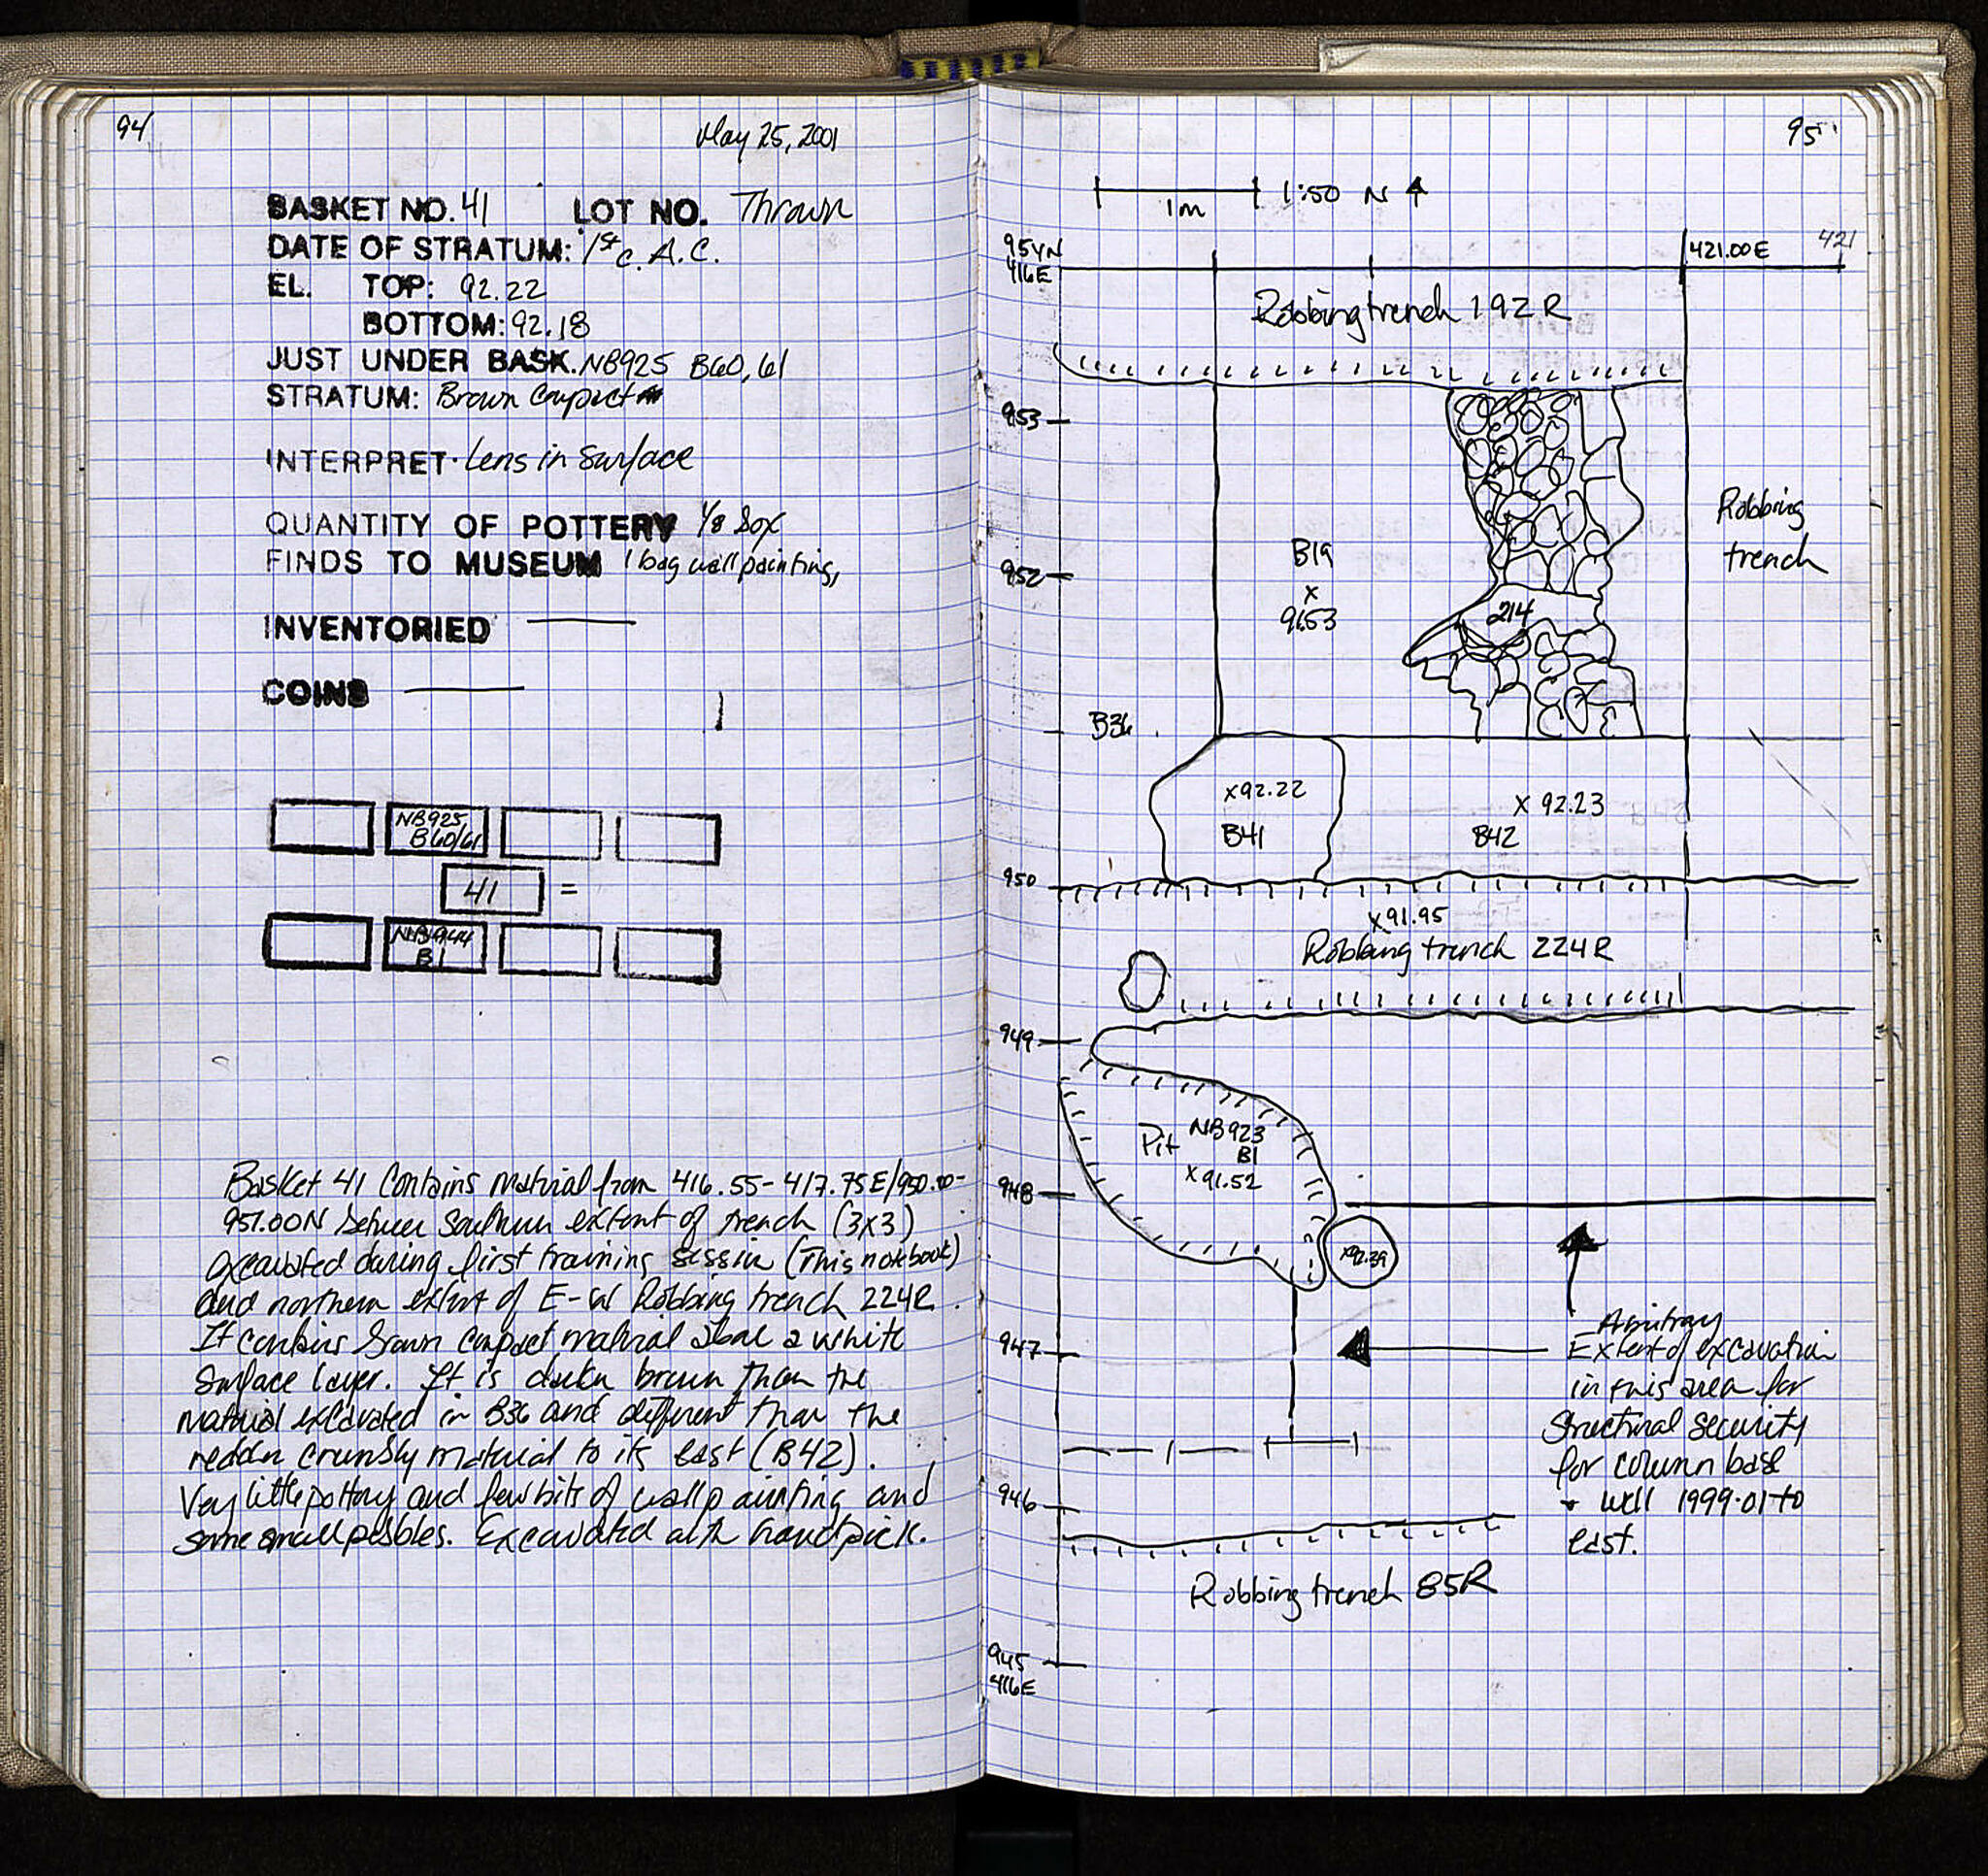 94
May 25, 2001
BASKET NO. 41 LOT NO. Thrown
DATE OF STRATUM: 1st c. A.C.
EL. TOP: 92.22
BOTTOM: 92.18
JUST UNDER BASK. NB925 B60, 61
STRATUM: Brown Compact
INTERPRET. Lens in Surface
QUANTITY OF POTTERY 1/8 Box
FINDS TO MUSEUM 1 bag wall painting,
INVENTORIED
COINS
NB925
B60/61
41 =
NB944
B1
Basket 41 Contains material from 416.55-417.75E/950.00-
951.00N between southern extent of trench (3x3)
excavated during first training session (This notebook)
and northern extent of E-W Robbing trench 224R.
It contains brown compact material above a white
surface layer. It is darker brown than the
material excavated in B36 and different than the
redder crumbly material to its east (B42).
Very little pottery and few bits of wall painting and
some small pebbles. Excavated with handpick.
95
1m 1:50 N
954N
416E
421.00E
421
Robbing trench 192R
953
Robbing
trench
952
B19
x
91.53
214
B36
x92.22
B41
x 92.23
B42
950
x91.95
Robbing trench 224R
949
Pit NB923
B1
x91.52
948
x92.39
947
Arbitrary
Extent of excavation
in this area for
structural security
for column base
+ well 1999-01 to
east.
946
Robbing trench 85R
945
416E